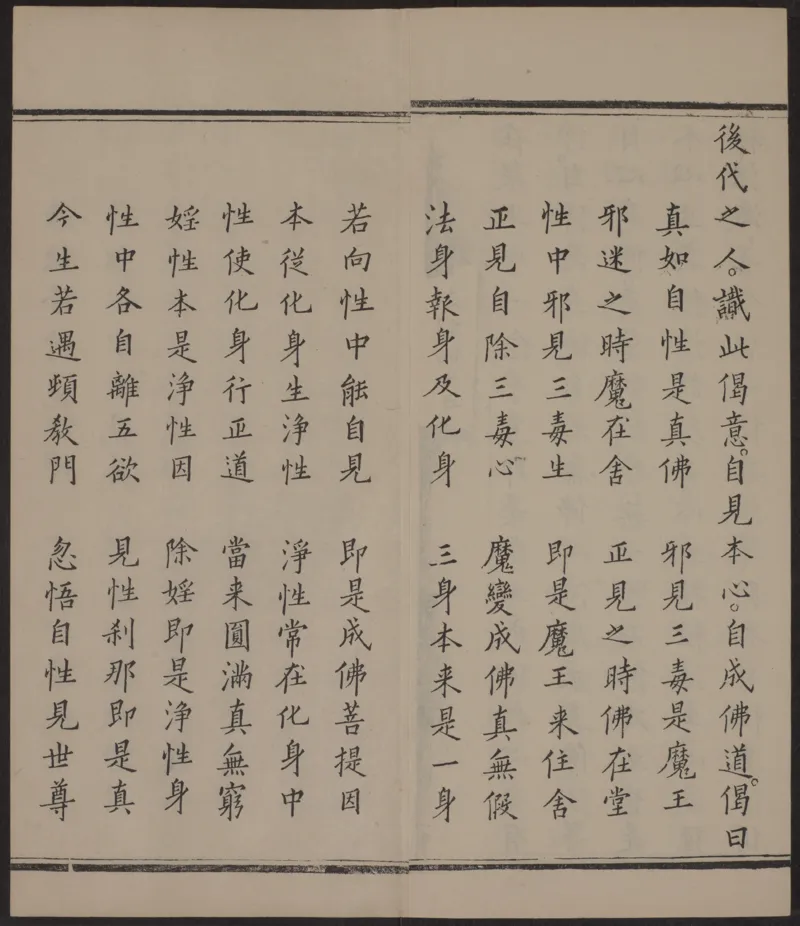 後代之人。識此偈意。自見本心。自成佛道。偈曰
真如自性是真佛 邪見三毒是魔王
邪迷之時魔在舍 正見之時佛在堂
性中邪見三毒生 即是魔王来住舍
正見自除三毒心 魔變成佛真無假
法身報身及化身 三身本来是一身
若向性中能自見 即是成佛菩提因
本從化身生淨性 淨性常在化身中
性使化身行正道 當来圓滿真無窮
婬性本是淨性因 除婬即是淨性身
性中各自離五欲 見性剎那即是真
今生若遇頓教門 忽悟自性見世尊